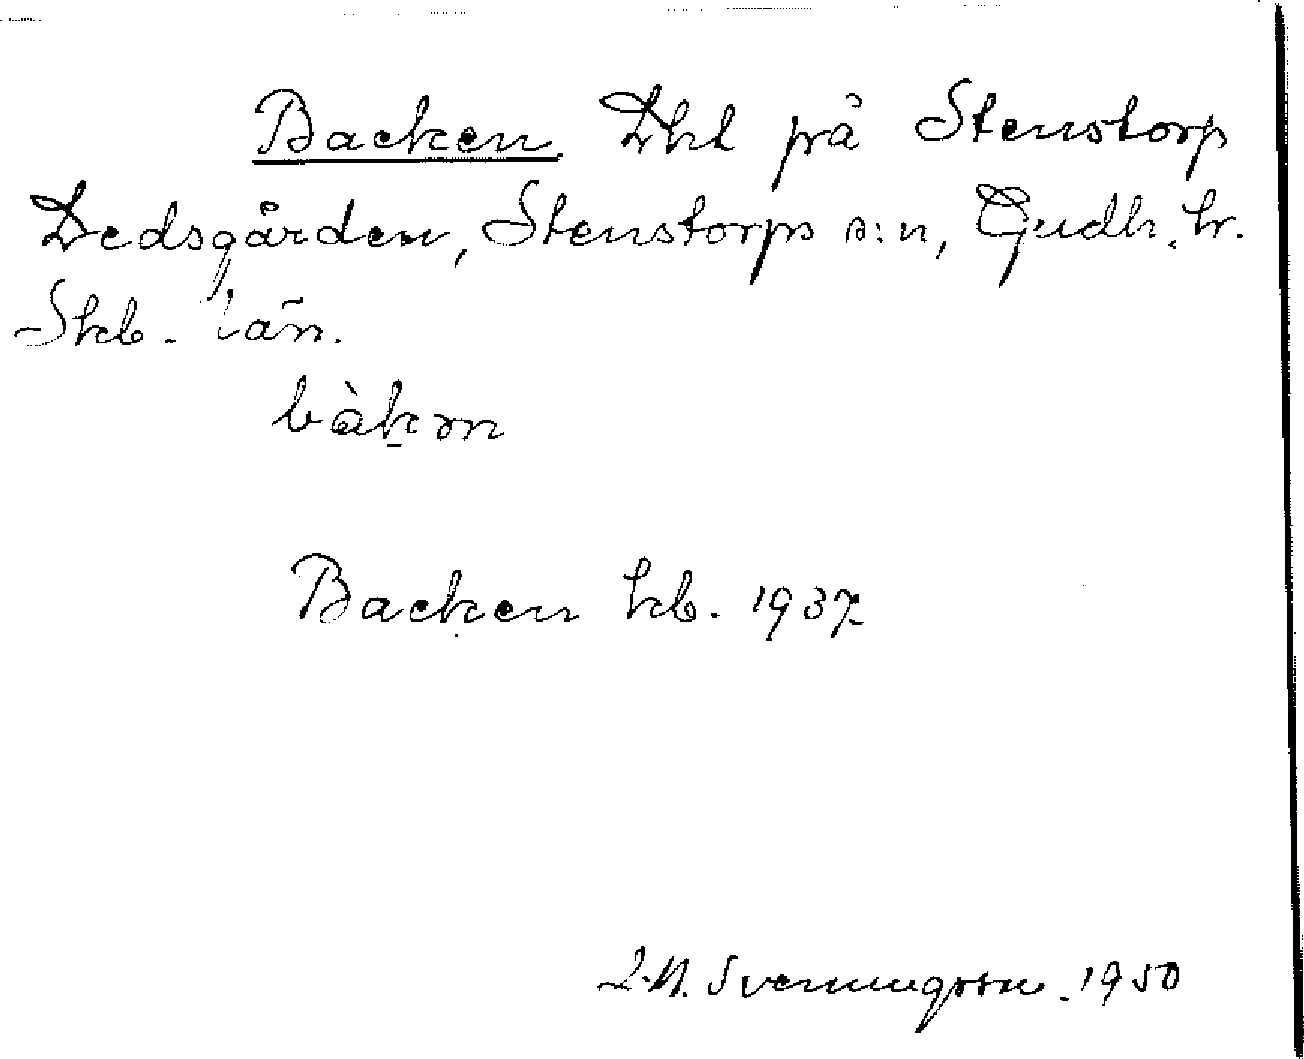 Backen. Lht på Stenstorp
Dedsgården, Stenstorps s:n, Gudh. hr.
Skb. län.
bàkɷn
Backen kb. 1937.
1950